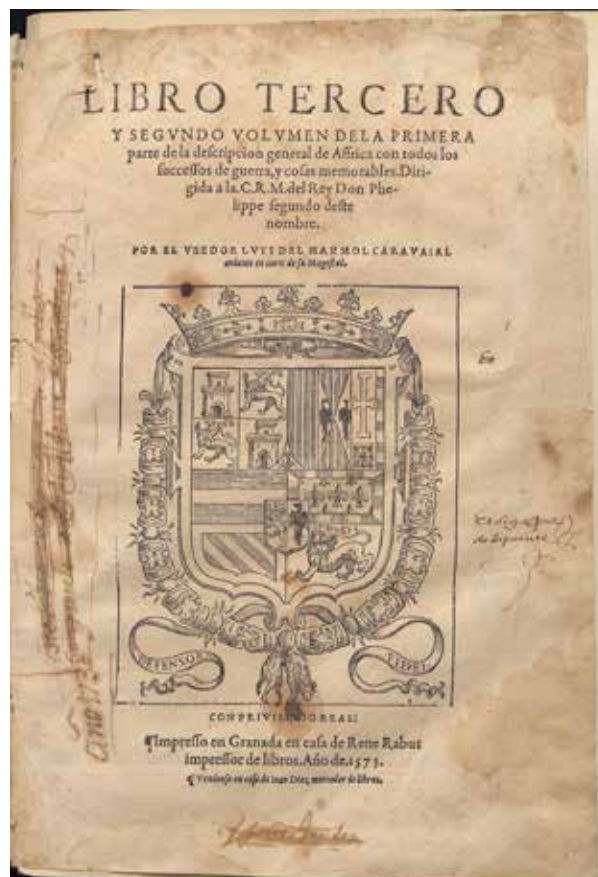 LIBRO TERCERO
Y SEGVNDO VOLVMEN DELA PRIMERA
parte de la descripcion general de Affrica con todos los
successos de guerra, y cosas memorables. Diri-
gida a la. C. R. M. del Rey Don Phe-
lippe segundo deste
nombre.
POR EL VEEDOR LVYS DEL MARMOL CARAVAIAL
andante en corte de su Magestad.
DEFENSOR
FIDEI
CON PRIVILEGIO REAL:
¶Impresso en Granada en casa de Rene Rabut
impressor de libros. Año de. 1573.
¶ Vendense en casa de Iuan Diez mercader de libros.